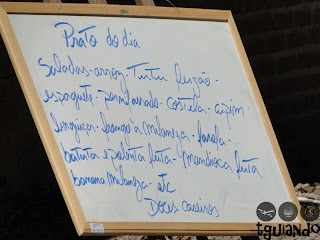 Prato do dia
Saladas - arroz - Tutu feijão -
espaguete - pernil assado - costela - aipim -
linguiça - banana à milaneza - farofa -
batata e polenta frita - mandioca frita
banana milaneza - etc
Doces caseiros
tguiando